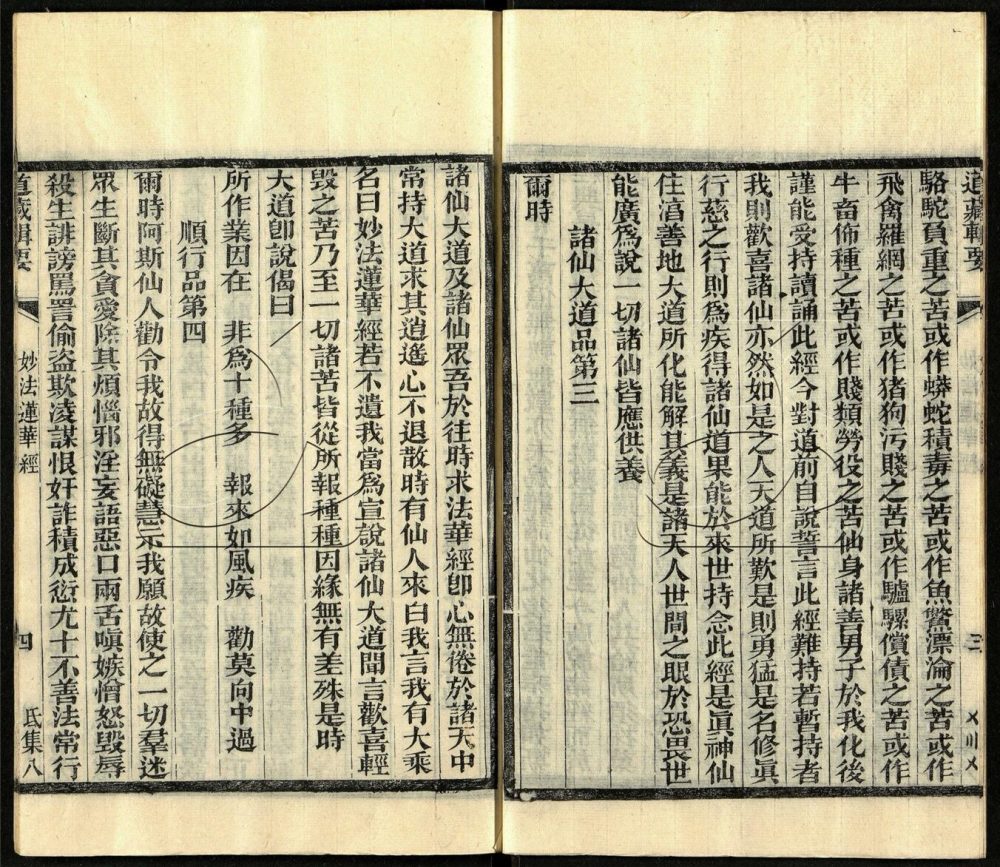 道藏輯要
三
駱駝負重之苦或作蟒蛇積毒之苦或作魚鱉漂淪之苦或作
飛禽羅網之苦或作猪狗汚賤之苦或作驢騾償債之苦或作
牛畜佈種之苦或作賤類勞役之苦仙身諸善男子於我化後
謹能受持讀誦此經今對道前自說誓言此經難持若暫持者
我則歡喜諸仙亦然如是之人天道所歎是則勇猛是名修眞
行慈之行則爲疾得諸仙道果能於來世持念此經是眞神仙
住湻善地大道所化能解其義是諸天人世間之眼於恐畏世
能廣爲說一切諸仙皆應供養
諸仙大道品第三
爾時
諸仙大道及諸仙眾吾於往時求法華經卽心無倦於諸天中
常持大道求其逍遙心不退散時有仙人來白我言我有大乘
名曰妙法蓮華經若不遺我當爲宣說諸仙大道聞言歡喜輕
毀之苦乃至一切諸苦皆從所報種種因緣無有差殊是時
大道卽說偈曰
所作業因在 非爲十種多 報來如風疾 勸莫向中過
順行品第四
爾時阿斯仙人勸令我故得無礙慧示我願故使之一切羣迷
眾生斷其貪愛除其煩惱邪淫妄語惡口兩舌嗔嫉憎怒毀辱
殺生誹謗罵詈偷盗欺凌謀恨奸詐積成愆尤十不善法常行
道藏輯要
妙法蓮華經
四
氐集八